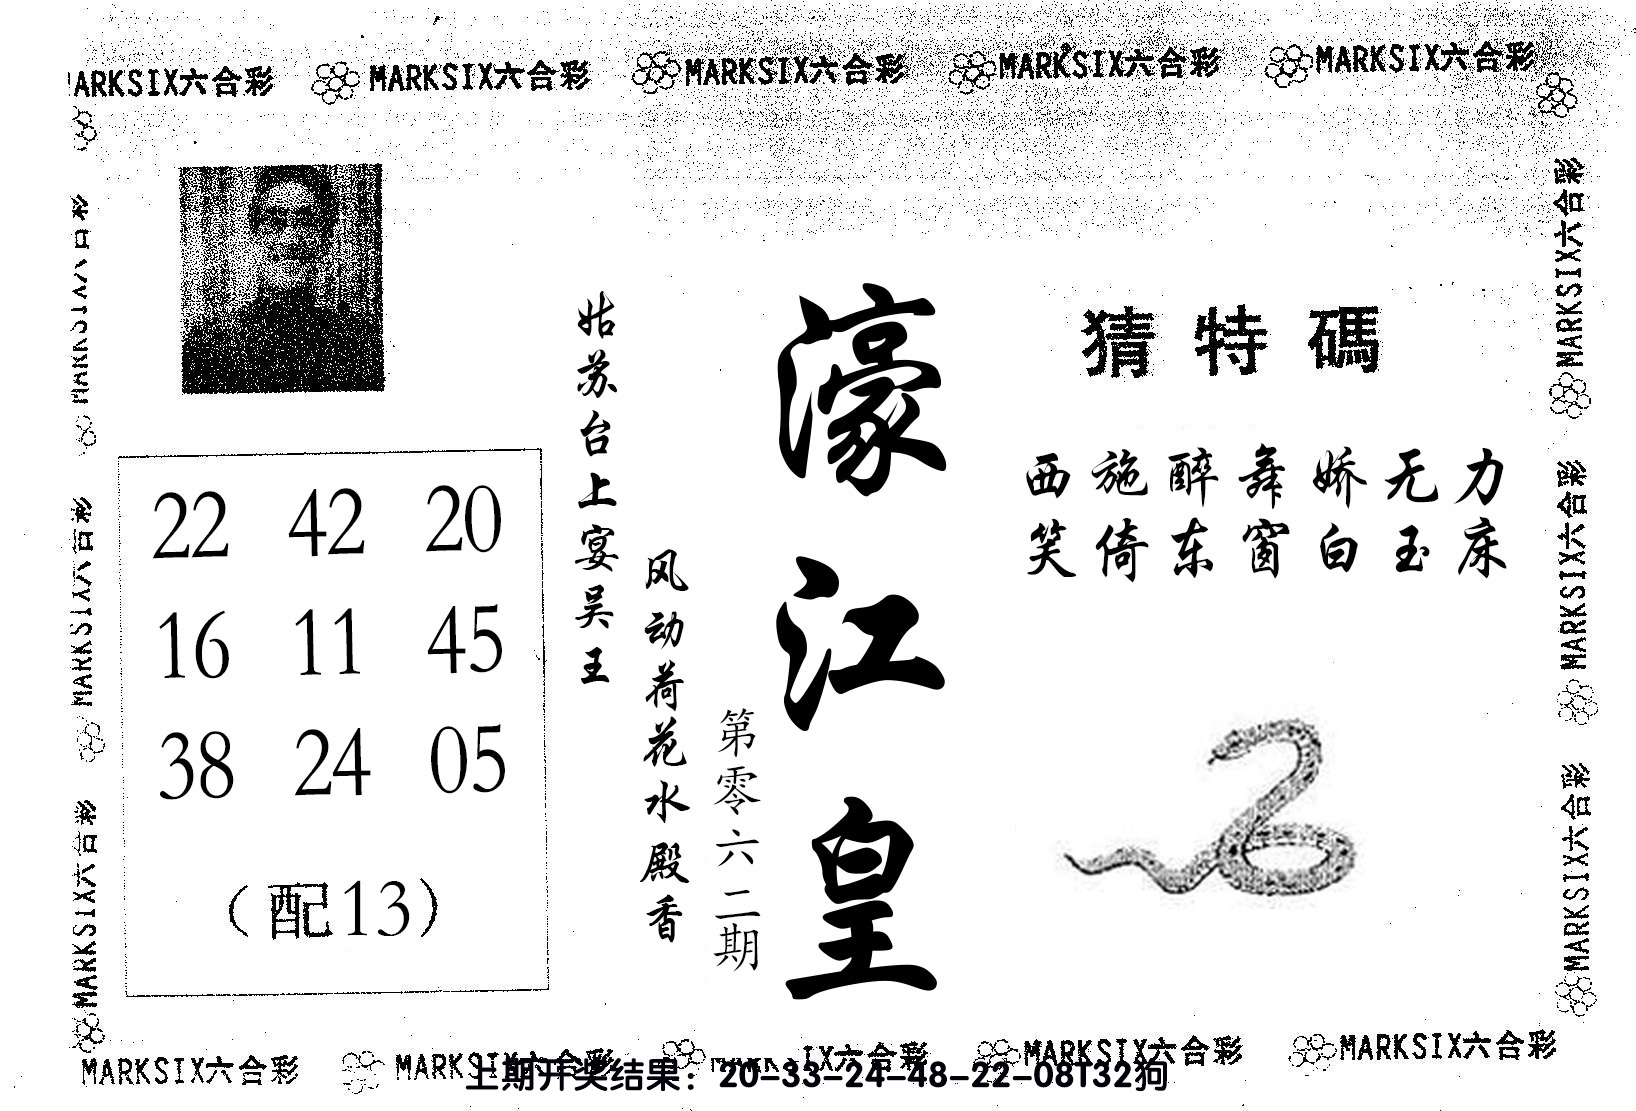 MARKSIX六合彩 MARKSIX六合彩 MARKSIX六合彩 MARKSIX六合彩 MARKSIX六合彩
MARKSIX六合彩
MARKSIX六合彩
MARKSIX六合彩
22 42 20
16 11 45
38 24 05
(配13)
姑苏台上宴吴王
风动荷花水殿香
第零六二期
濠江皇
猜特碼
西施醉舞娇无力
笑倚东窗白玉床
MARKSIX六合彩
MARKSIX六合彩
MARKSIX六合彩
MARKSIX六合彩 MARKSIX六合彩 IX六合彩 MARKSIX六合彩 MARKSIX六合彩
上期开奖结果：20-33-24-48-22-08T32狗